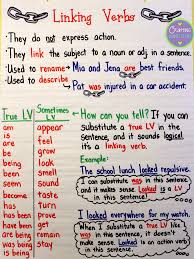 Linking Verbs
• They do not express action.
• They link the subject to a noun or adj. in a sentence.
• Used to rename → Mia and Jena are best friends.
• Used to describe → Pat was injured in a car accident.
True LV
am
is
are
be
being
been
was
were
has been
have been
had been
are being
was being
Sometimes LV
appear
feel
grow
look
seem
smell
sound
taste
become
act
turn
remain
get
stay
• How can you tell? If you can
substitute a true LV
in the sentence, and it sounds logical
it's a linking verb!
Example:
The school lunch looked repulsive.
When I substitute a true LV like
was in the sentence, it still makes
sense. Looked is a LV
in this sentence.
I looked everywhere for my watch.
When I substitute a true LV like
was in this sentence, it doesn't
make sense. Looked is an action verb